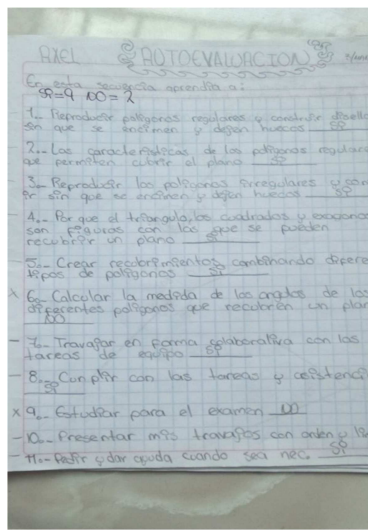 AXEL AUTOEVALUACION
En esta secuencia aprendía a:
SP=9 NO=2
1.- Reproducir poligonos regulares y construir diseños
sin que se encimen y dejen huecos SP
2.- Las características de los poligonos regulares
que permiten cubrir al plano SP
3.- Reproducir los poligonos irregulares y con
ir sin que se encimen y dejen huecos SP
4.- Por que el triangulo, los cuadrados y exagonos
son figuras con las que se pueden
recubrir un plano SP
5.- Crear recubrimientos combinando difere
tipos de poligonos SP
x 6.- Calcular la medida de los angulos de los
diferentes poligonos que recubren un plan
NO
- 7.- Travajar en forma colaborativa con las
tareas de equipo SP
- 8.- Cumplir con las tareas y asistenci
SP
x 9.- Estudiar para el examen NO
- 10.- Presentar mis travajos con orden y
- 11.- Pedir y dar ayuda cuando sea nec. SP